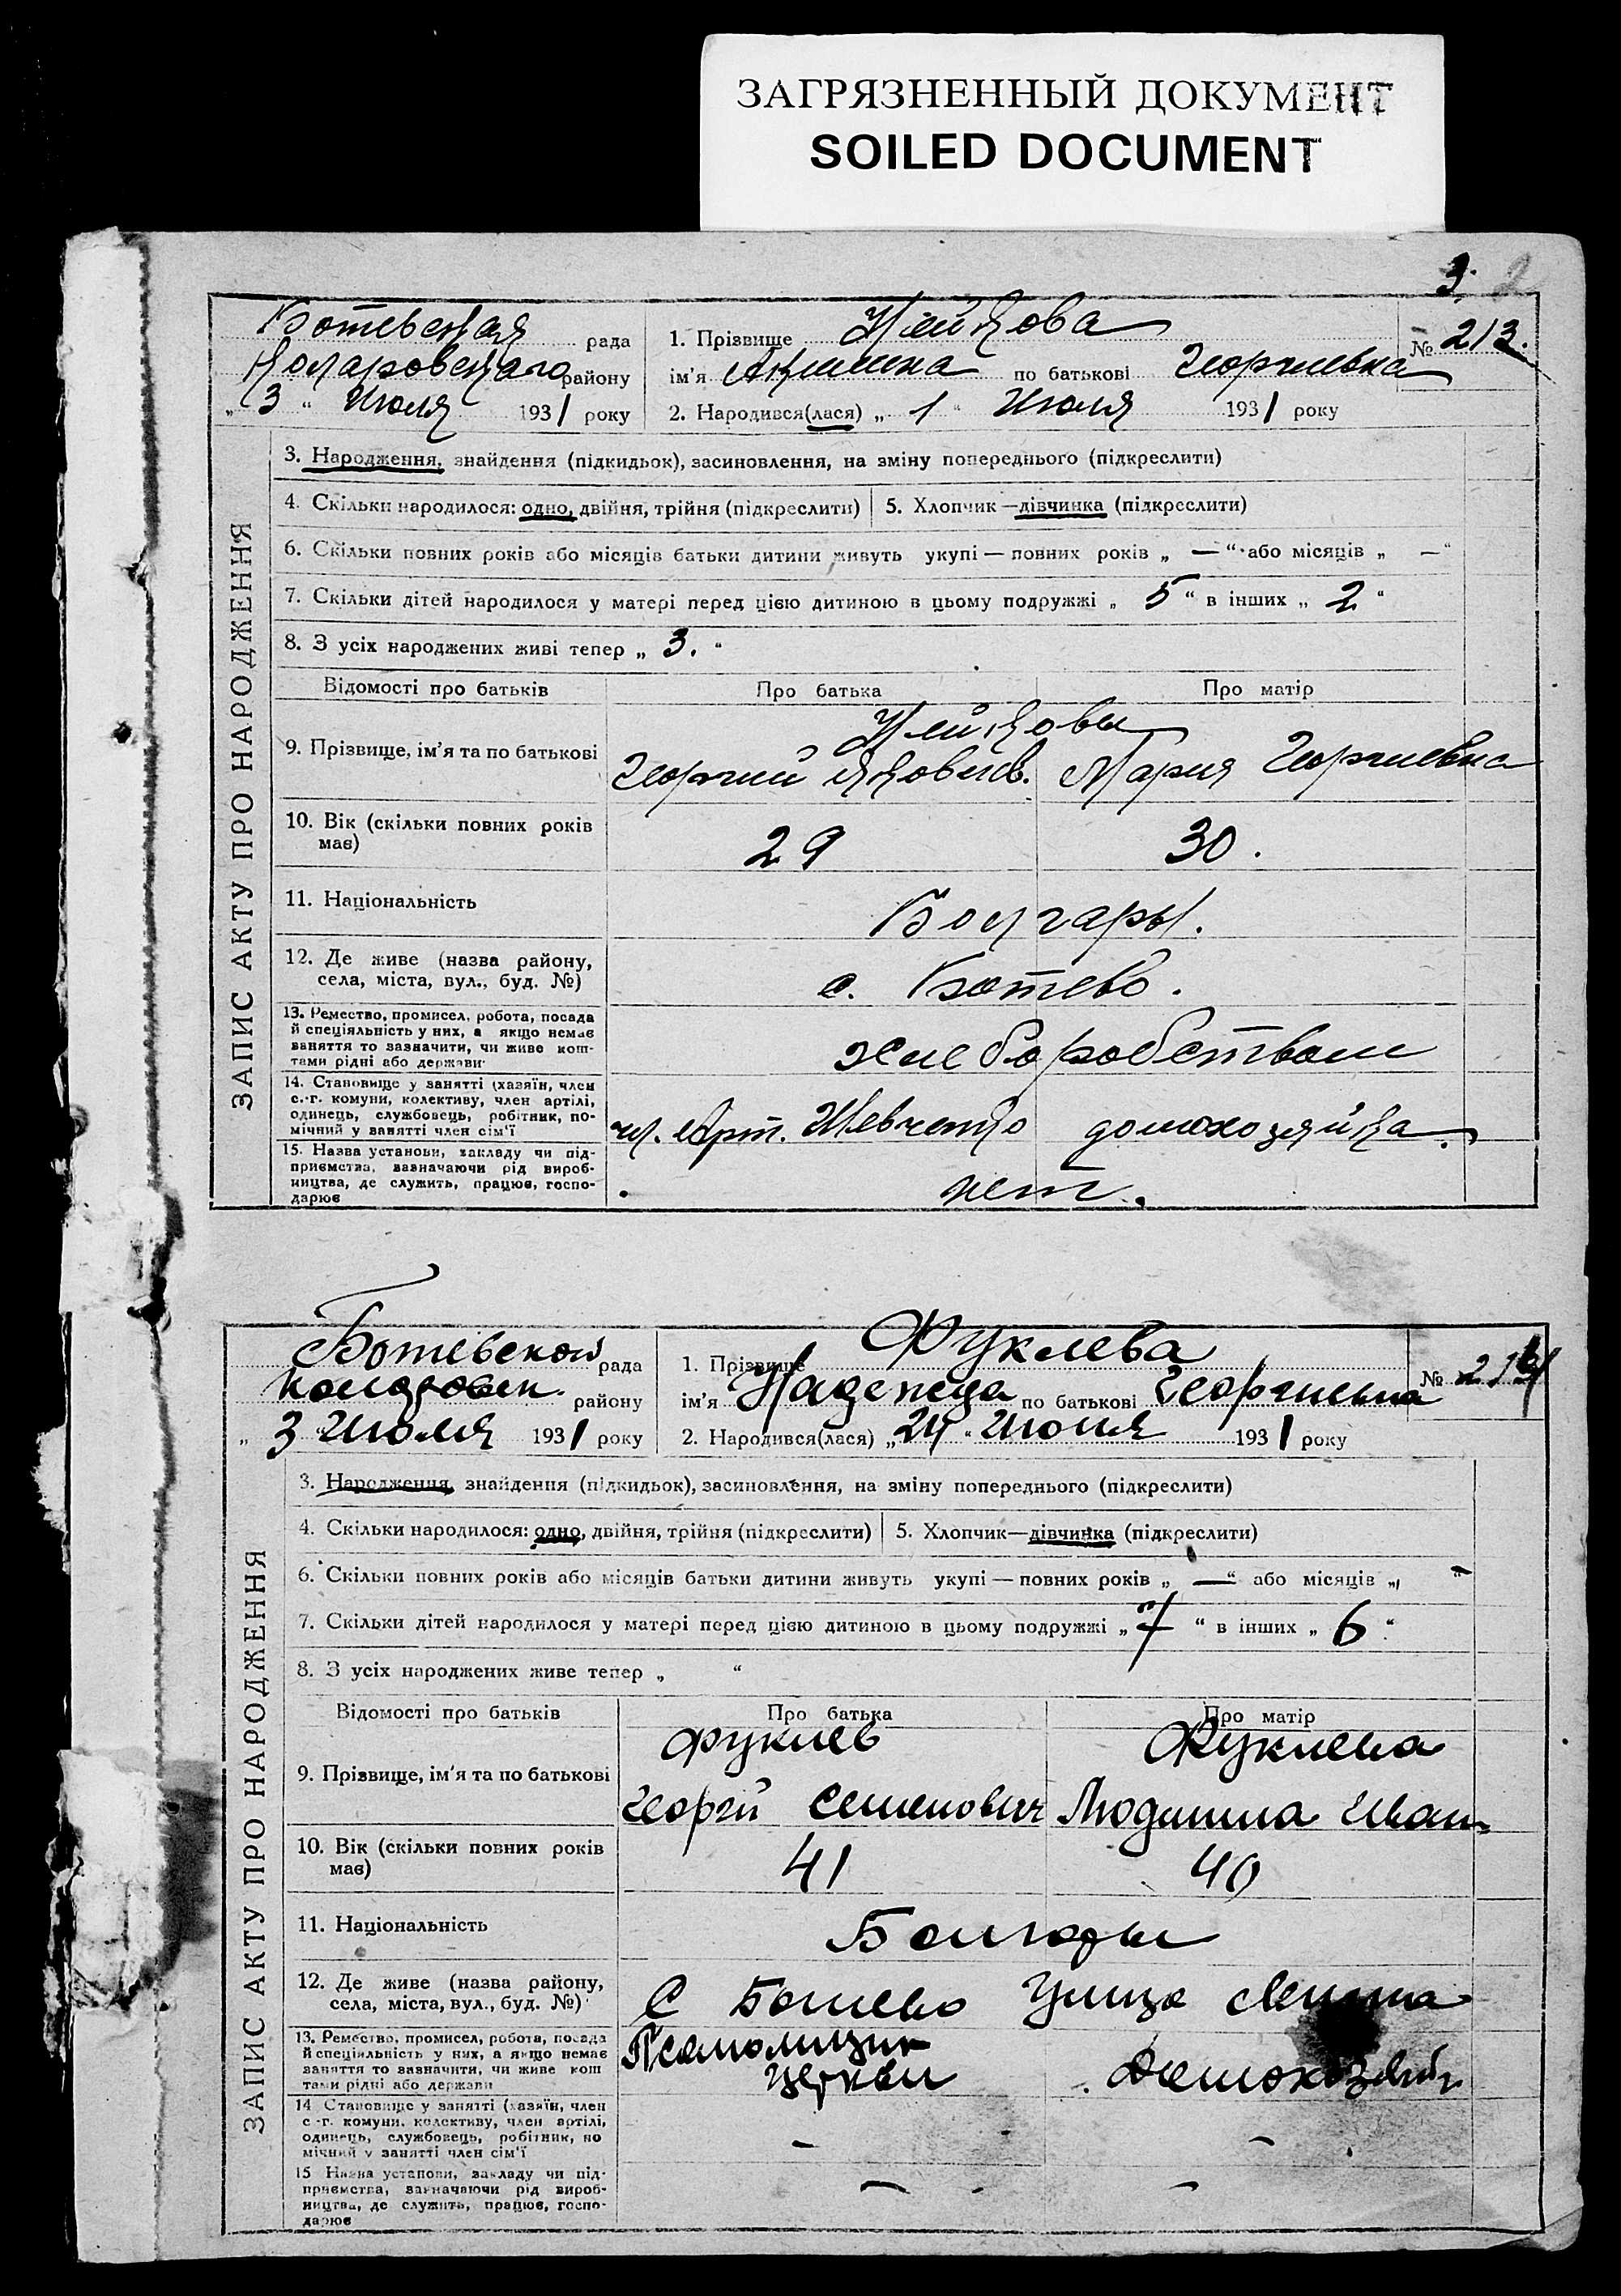 ЗАГРЯЗНЕННЫЙ ДОКУМЕНТ
SOILED DOCUMENT
3.
2
Ботевская рада
Коларовского району
„ 3 “ Июля 1931 року
1. Прізвище Нейкова
№ 213.
ім'я по батькові Георгиевна
2. Народився(лася) „ 1 “ Июля 1931 року
ЗАПИС АКТУ ПРО НАРОДЖЕННЯ
3. Народження, знайдення (підкидьок), засиновлення, на зміну попереднього (підкреслити)
4. Скільки народилося: одно, двійня, трійня (підкреслити)
5. Хлопчик—дівчинка (підкреслити)
6. Скільки повних років або місяців батьки дитини живуть укупі — повних років „ — “ або місяців „ — “
7. Скільки дітей народилося у матері перед цією дитиною в цьому подружжі „ 5 “ в інших „ 2 “
8. З усіх народжених живі тепер „ 3. “
Відомості про батьків
Про батька
Про матір
9. Прізвище, ім'я та по батькові
Нейковы
Георгий Яковлев.
Мария Георгиевна
10. Вік (скільки повних років
має)
29
30.
11. Національність
Болгары.
12. Де живе (назва району,
села, міста, вул., буд. №)
с. Ботево.
13. Ремество, промисел, робота, посада
й спеціяльність у них, а якщо немає
заняття то зазначити, чи живе кош-
тами рідні або держави
хлеборобством
14. Становище у занятті (хазяїн, член
с.-г. комуни, колективу, член артілі,
одинець, службовець, робітник, по-
мічний у занятті член сім'ї
чл. Арт. Шевченко
домохозяйка.
15. Назва установи, закладу чи під-
приємства, зазначаючи рід вироб-
ництва, де служить, працює, госпо-
дарює
нет.
Ботевской рада
району
„ 3 Июля 1931 року
1. Прізвище Фуклева
№ 214
ім'я Надежда по батькові Георгиевна
2. Народився(лася) „ 24 “ Июня 1931 року
ЗАПИС АКТУ ПРО НАРОДЖЕННЯ
3. Народження, знайдення (підкидьок), засиновлення, на зміну попереднього (підкреслити)
4. Скільки народилося: одно, двійня, трійня (підкреслити)
5. Хлопчик—дівчинка (підкреслити)
6. Скільки повних років або місяців батьки дитини живуть укупі — повних років „ — “ або місяців „ “
7. Скільки дітей народилося у матері перед цією дитиною в цьому подружжі „ 7 “ в інших „ 6 “
8. З усіх народжених живе тепер „ “
Відомості про батьків
Про батька
Про матір
9. Прізвище, ім'я та по батькові
Фуклев
Фуклева
Георгй Семенович
Людмила Иван.
10. Вік (скільки повних років
має)
41
40
11. Національність
Болгары
12. Де живе (назва району,
села, міста, вул., буд. №)
С Ботево Улица Ленина
13. Ремество, промисел, робота, посада
й спеціяльність у них, а якщо немає
заняття то зазначити, чи живе кош
тами рідні або держави
Псаломщик
церкви
Домохозяй
14 Становище у занятті (хазяїн, член
с-г. комуни, колективу, член артілі,
одинець, службовець, робітник, по
мічний у занятті член сім'ї
–
–
15 Назва установи, закладу чи під-
приємства, зазначаючи рід вироб-
ництва, де служить, працює, госпо-
дарює
–
–